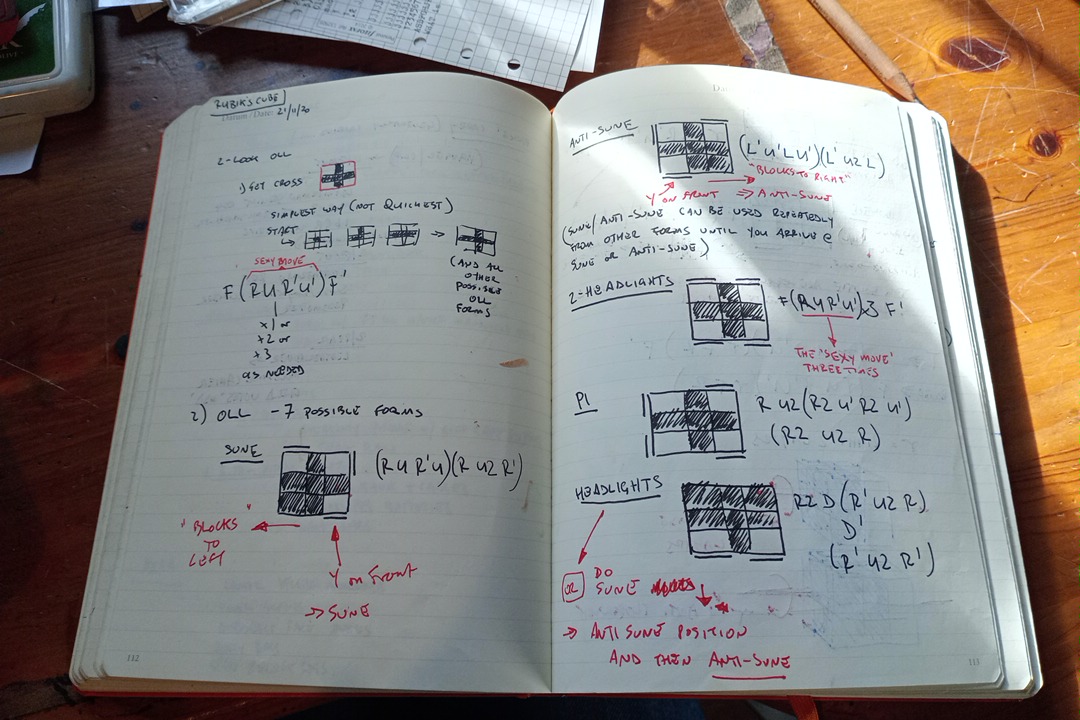 RUBIK'S CUBE
Datum / Date: 21/11/20
2-LOOK OLL
1) GET CROSS
SIMPLEST WAY (NOT QUICKEST)
START
SEXY MOVE
F (R U R' U') F'
x 1 or
x 2 or
x 3
as NEEDED
(AND ALL
OTHER
POSSIBLE
OLL
FORMS
2) OLL - 7 POSSIBLE FORMS
SUNE
(R U R' U)(R U2 R')
"BLOCKS"
TO
LEFT
Y on Front
⇒ SUNE
112
ANTI-SUNE
(L' U' L U')(L' U2 L)
"BLOCKS TO RIGHT"
Y ON FRONT ⇒ ANTI-SUNE
(SUNE/ANTI-SUNE CAN BE USED REPEATEDLY
FROM OTHER FORMS UNTIL YOU ARRIVE @
SUNE OR ANTI-SUNE)
2-HEADLIGHTS
F (R U R' U')x3 F'
THE 'SEXY MOVE'
THREE TIMES
PI
R U2 (R2 U' R2 U')
(R2 U2 R)
HEADLIGHTS
R2 D (R' U2 R)
D'
(R' U2 R')
OR
DO
SUNE
⇒ ANTI SUNE POSITION
AND THEN ANTI-SUNE
113